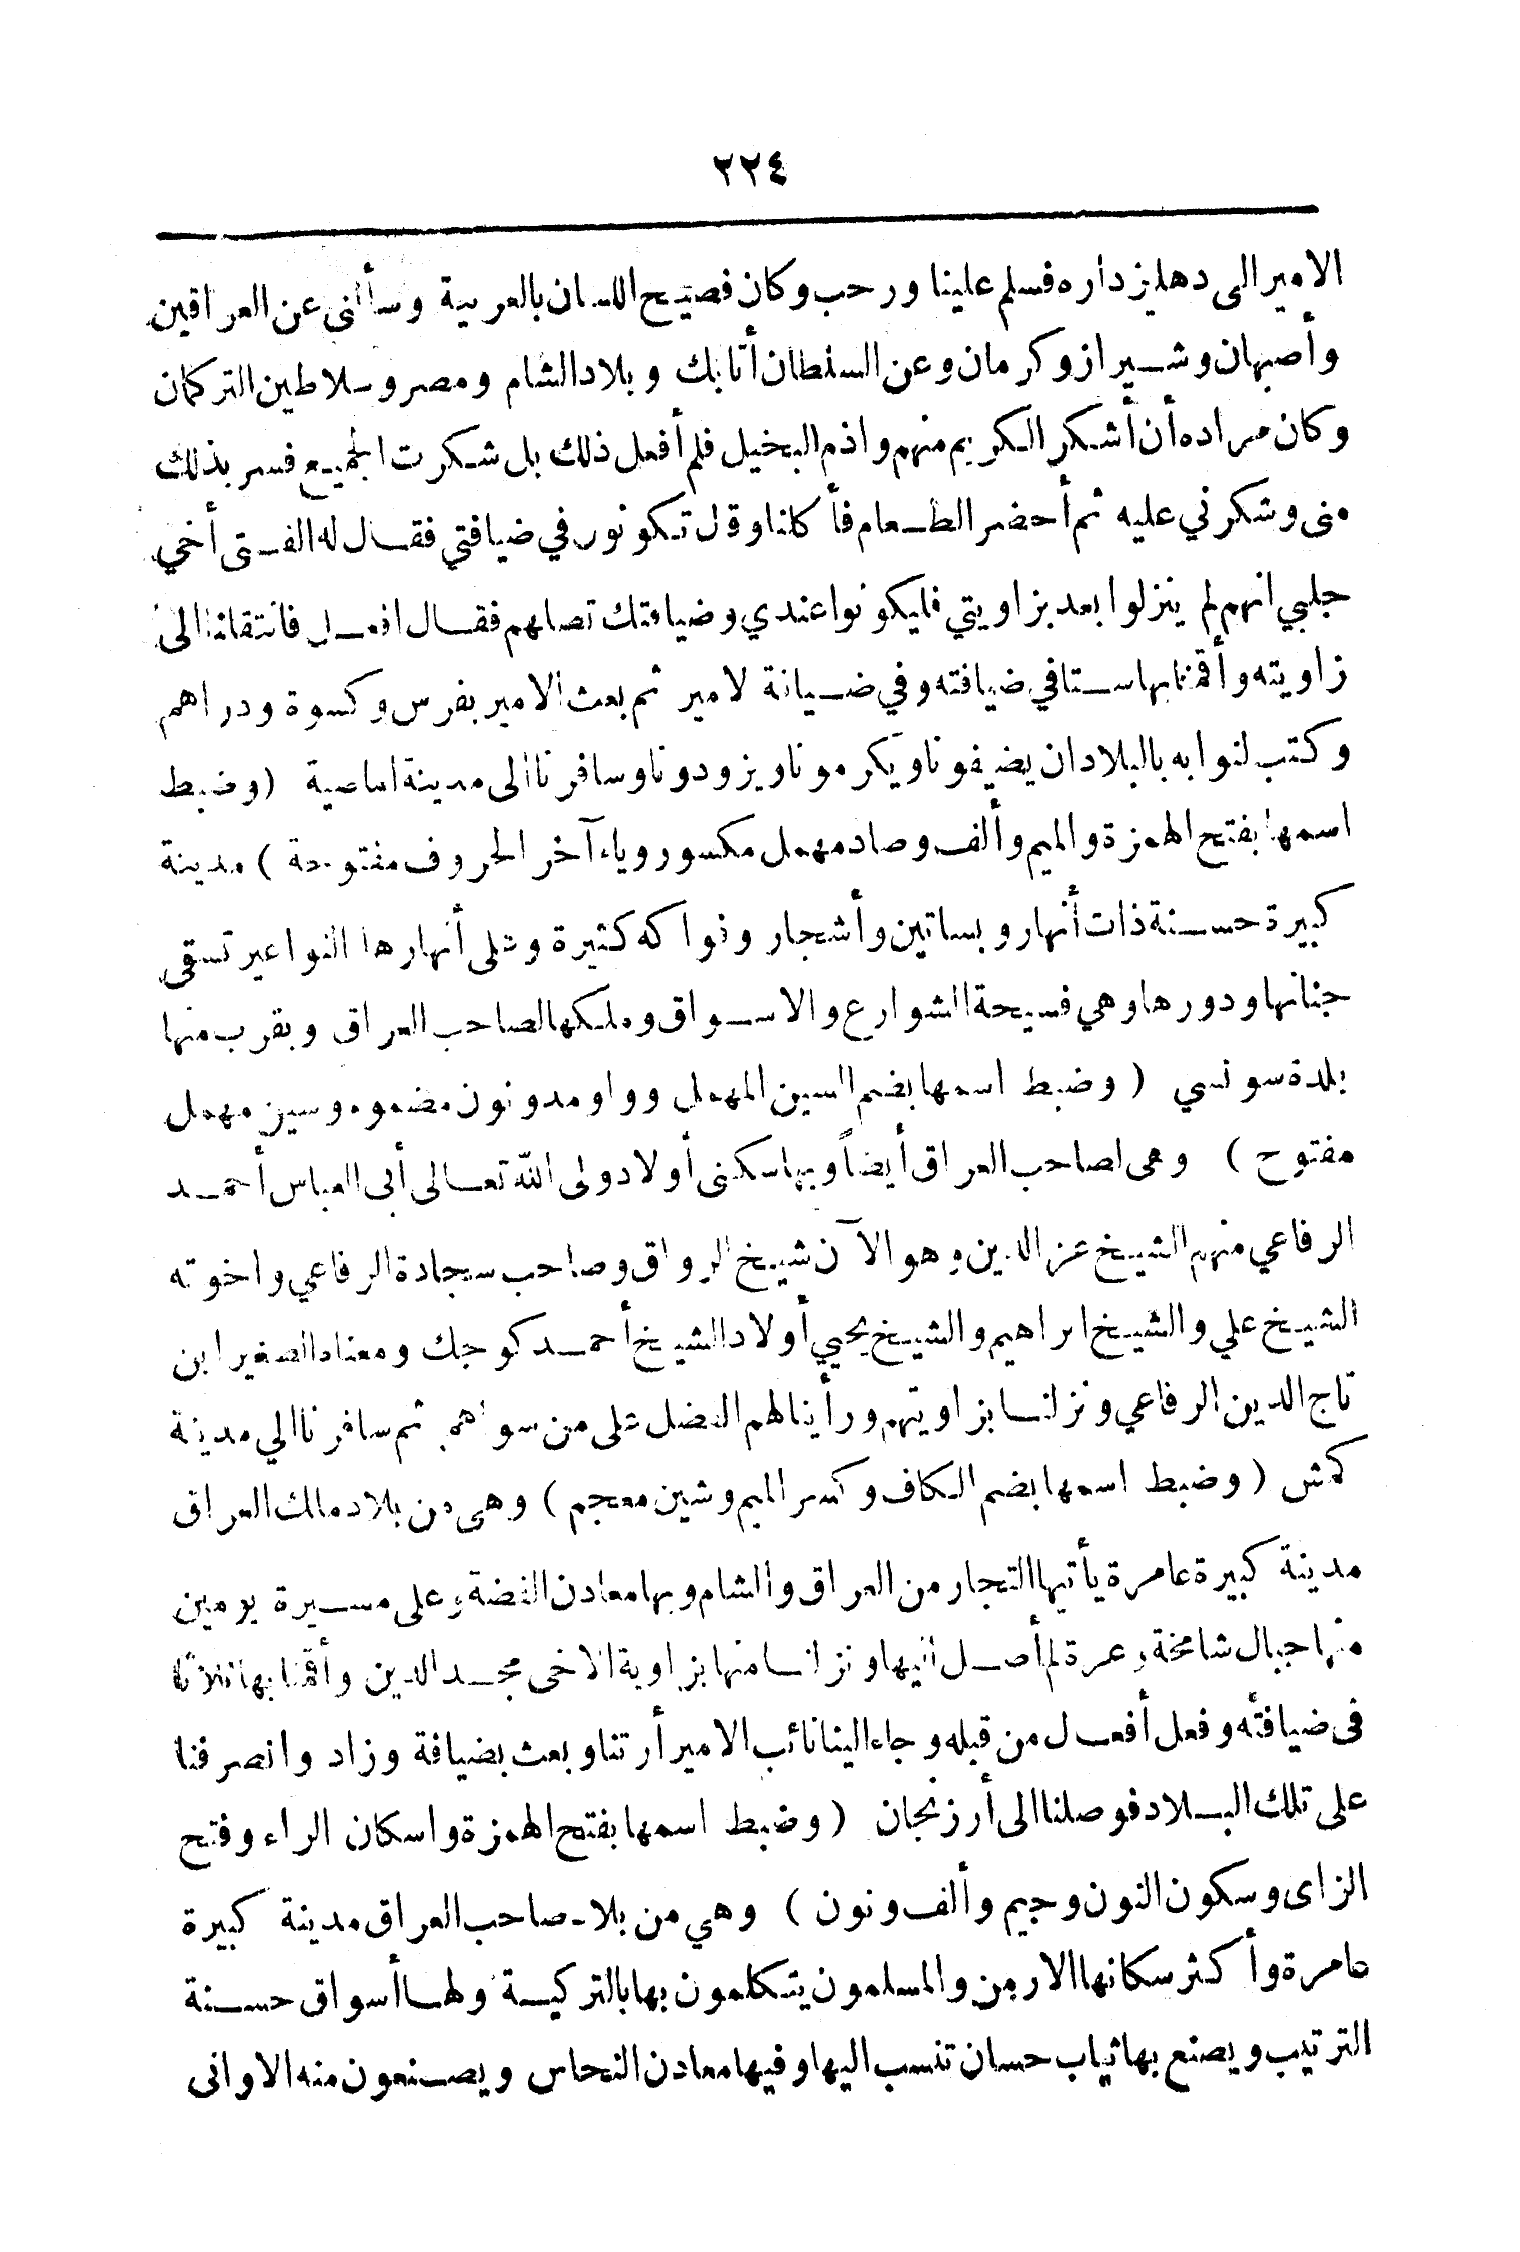 ٢٢٤
الامير الى دهليز داره فسلم علينا ورحب وكان فصيح اللسان بالعربية وسألنى عن العراقين
وأصبهان وشيراز وكرمان وعن السلطان أتابك وبلاد الشام ومصر وسلاطين التركمان
وكان مراده أن أشكر الكريم منهم واذم البخيل فلم أفعل ذلك بل شكرت الجميع فسر بذلك
منى وشكرني عليه ثم أحضر الطعام فأكلنا وقال تكونون في ضيافتي فقال له الفتى أخي
جلبي انهم لم ينزلوا بعد بزاويتي فليكونوا عندي وضيافتك تصلهم فقال افعل فانتقلنا الى
زاويته وأقمنا بها ستا في ضيافته وفي ضيافة الامير ثم بعث الامير بفرس وكسوة ودراهم
وكتب لنوابه بالبلاد ان يضيفونا ويكرمونا ويزودونا وسافرنا الى مدينة اماصية (وضبط
اسمها بفتح الهمزة والميم وألف وصاد مهمل مكسور وياء آخر الحروف مفتوحة) مدينة
كبيرة حسنة ذات أنهار وبساتين وأشجار وفواكه كثيرة وعلى أنهارها النواعير تسقى
جنانها ودورها وهي فسيحة الشوارع والاسواق وملكها لصاحب العراق وبقرب منها
بلدة سونسي (وضبط اسمها بضم السين المهمل وواو مد ونون مضمومه وسين مهمل
مفتوح) وهى لصاحب العراق أيضاً وبها سكنى أولاد ولى الله تعالى أبى العباس أحمد
الرفاعي منهم الشيخ عز الدين وهو الآن شيخ الرواق وصاحب سجادة الرفاعي واخوته
الشيخ علي والشيخ ابراهيم والشيخ يحيي أولاد الشيخ أحمد كوجك ومعناه الصغير ابن
تاج الدين الرفاعي ونزلنا بزاويتهم ورأينا لهم الفضل على من سواهم ثم سافرنا الي مدينة
كمش (وضبط اسمها بضم الكاف وكسر الميم وشين معجم) وهى من بلاد ملك العراق
مدينة كبيرة عامرة يأتيها التجار من العراق والشام وبها معادن الفضة وعلى مسيرة يومين
منها جبال شامخة وعرة لم أصل اليها ونزلنا منها بزاوية الاخى مجد الدين وأقمنا بها ثلاثا
فى ضيافته وفعل أفعال من قبله وجاء الينا نائب الامير أرتنا وبعث بضيافة وزاد وانصرفنا
على تلك البلاد فوصلنا الى أرزنجان (وضبط اسمها بفتح الهمزة واسكان الراء وفتح
الزاى وسكون النون وجيم وألف ونون) وهي من بلاد صاحب العراق مدينة كبيرة
عامرة وأكثر سكانها الارمن والمسلمون يتكلمون بها بالتركية ولها أسواق حسنة
الترتيب ويصنع بها ثياب حسان تنسب اليها وفيها معادن النحاس ويصنعون منه الاوانى